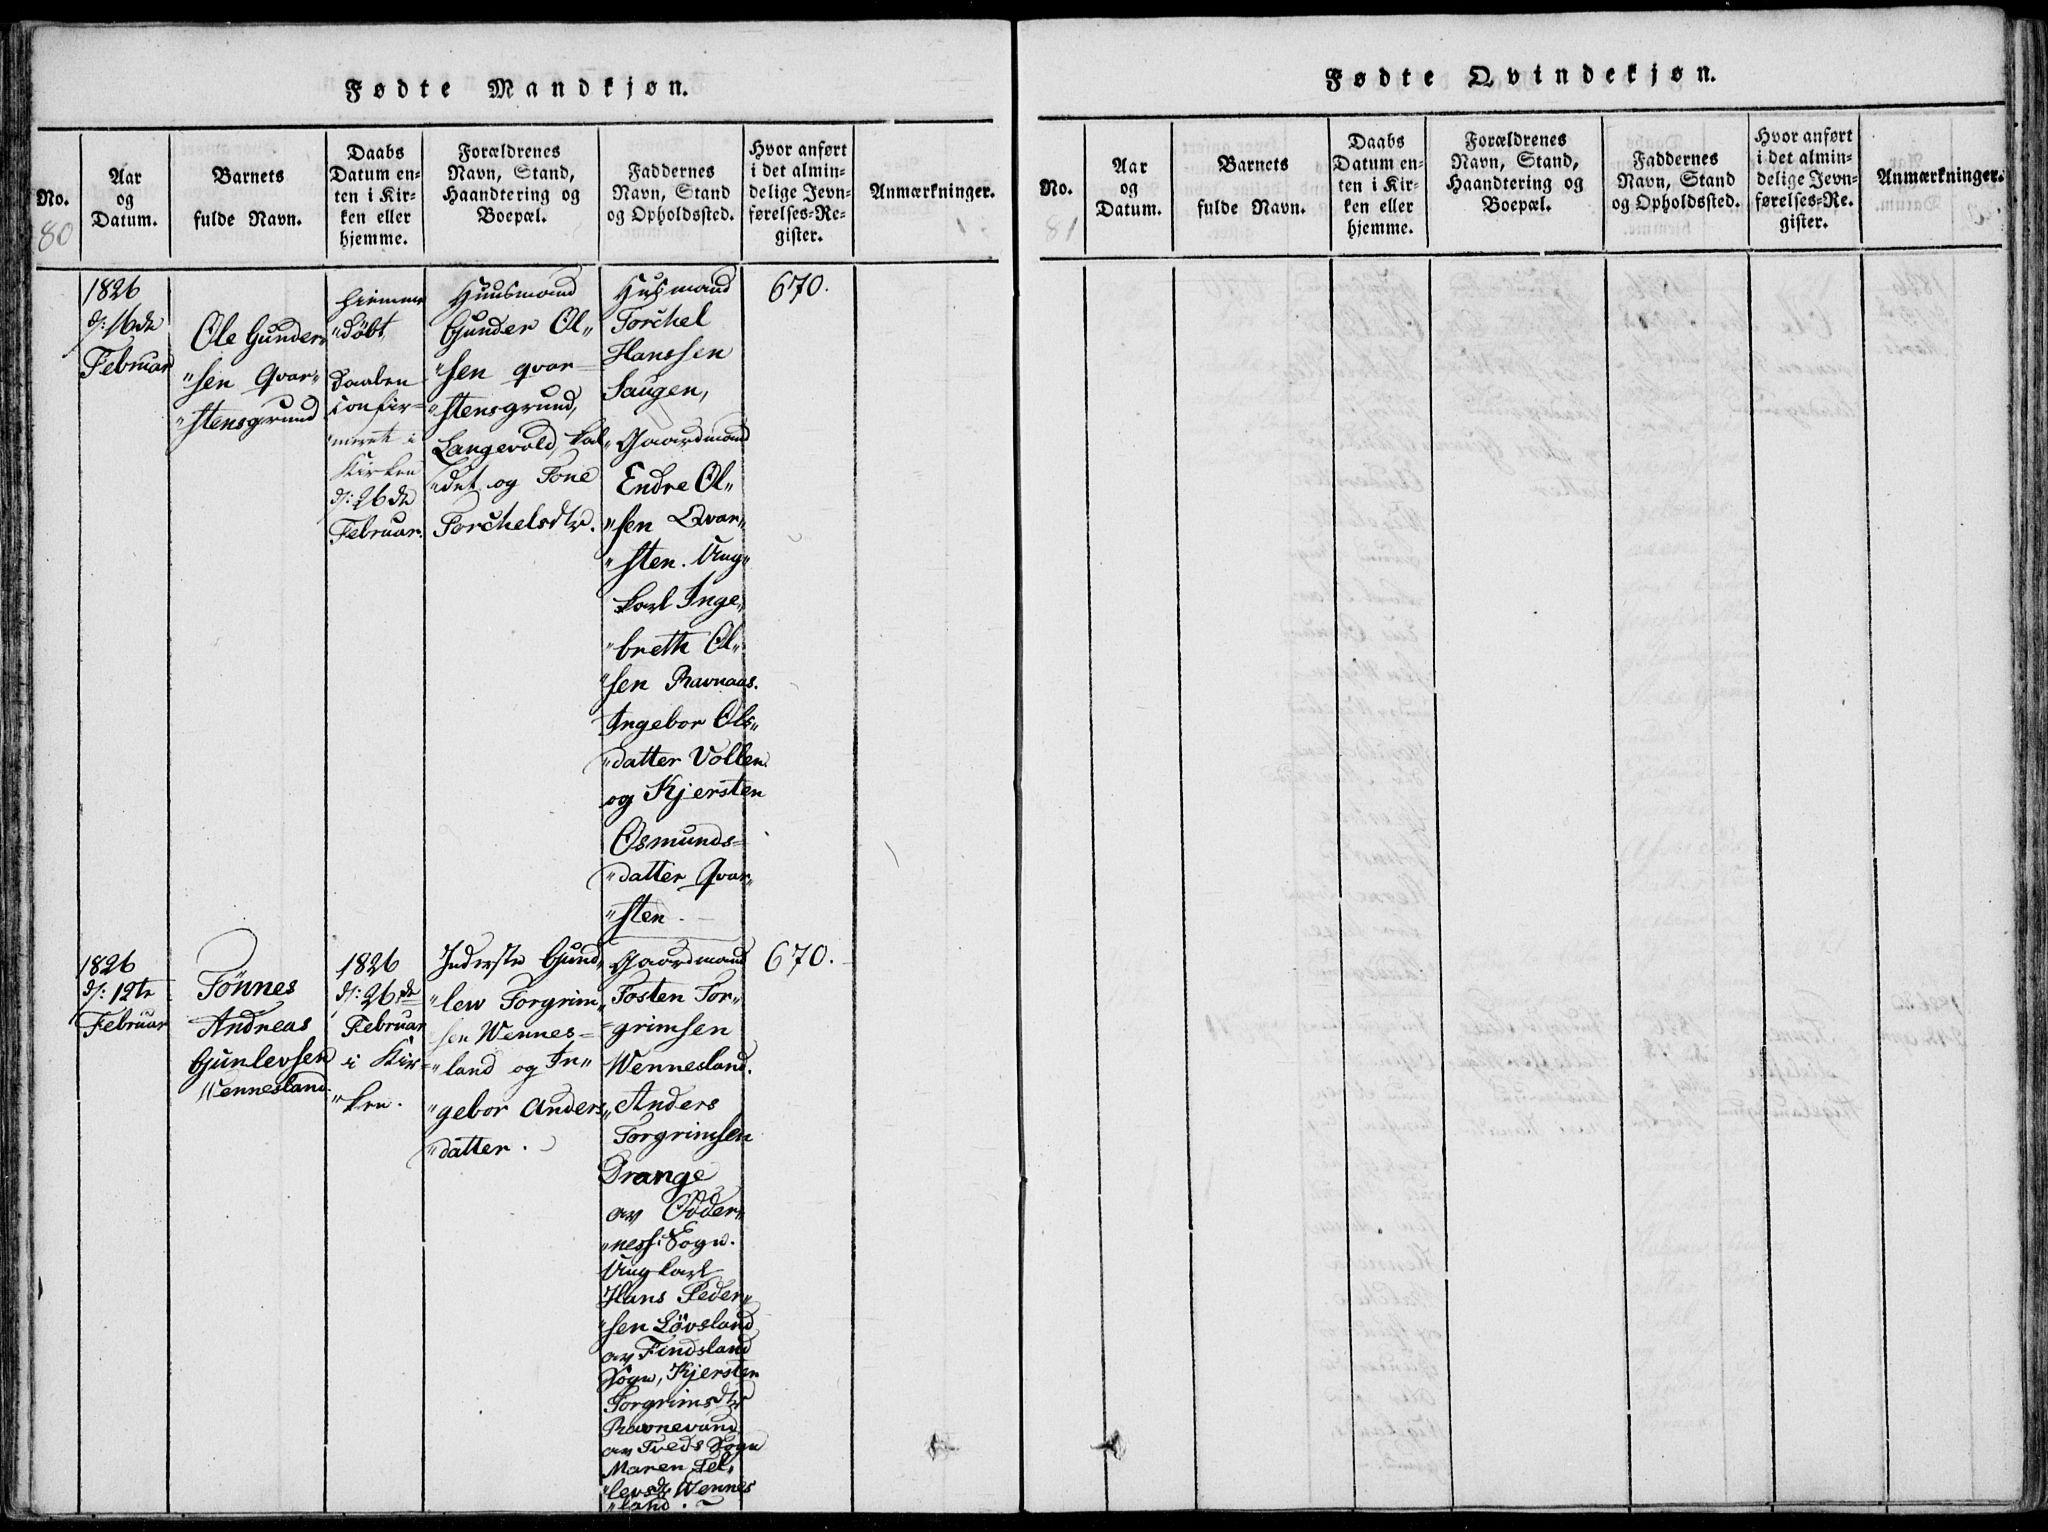 Fødte Mandkjøn.
No.
80
Aar
og
Datum.
Barnets
fulde Navn.
Daabs
Datum en-
ten i Kir-
ken eller
hjemme.
Forældrenes
Navn, Stand,
Haandtering og
Boepæl.
Faddernes
Navn, Stand
og Opholdssted.
Hvor anført
i det almin-
delige Jevn-
førelses-Re-
gister.
Anmærkninger.
1826
d: 16de
Februar
Ole Gunder
"sen Qvar"
"stensgrund
hiemme
"døbt,
Daaben
confir=
"meret i
Kirken
d: 26de
Februar.
Huusmand
Gunder Ol"
"sen qvar=
"stensgrund,
Langevold kal
"det og Tone
Torchelsdtr.
Husmand
Torchel
Hanssen
Haugen,
Gaardmand
Endre Ol"
"sen Qvar"
"sten. Ung"
karl Inge"
"breth Ol"
"sen Ravnaas.
Ingebor Ols"
"datter Vollen
og Kjersten
Osmunds=
"datter Qvar"
"sten.
670.
1826
d: 12te
Februar
Tönnes
Andreas
Gunlevsen
Wennesland.
1826
d: 26de
Februar
i Kir=
"ken.
Inderste Gund"
"lew Torgrim"
sen Wennes=
"land og In"
"gebor Anders"
"datter.
Gaardmand
Tosten Tor"
=grimsen
Wennesland.
Anders
Torgrimsen
Drange
av Odder"
"ness: Sogn.
Ungkarl
Hans Peder"
"sen Lövsland
av Findsland
Sogn, Kjersten
Torgrimsdtr
Ravnevand
av Tveds Sogn
Maren Tel"
"levsdtr Wennes
"land.
670.
Fødte Qvindekjøn.
No.
81
Aar
og
Datum.
Barnets
fulde Navn.
Daabs
Datum en-
ten i Kir-
ken eller
hjemme.
Forældrenes
Navn, Stand,
Haandtering og
Boepæl.
Faddernes
Navn, Stand
og Opholdssted.
Hvor anført
i det almin-
delige Jevn-
førelses-Re-
gister.
Anmærkninger.